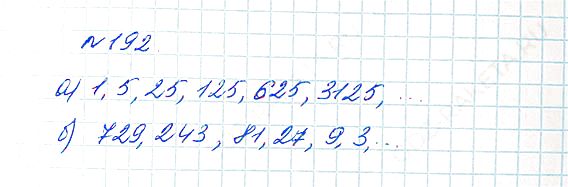 №192.
а) 1, 5, 25, 125, 625, 3125, ...
б) 729, 243, 81, 27, 9, 3, ...